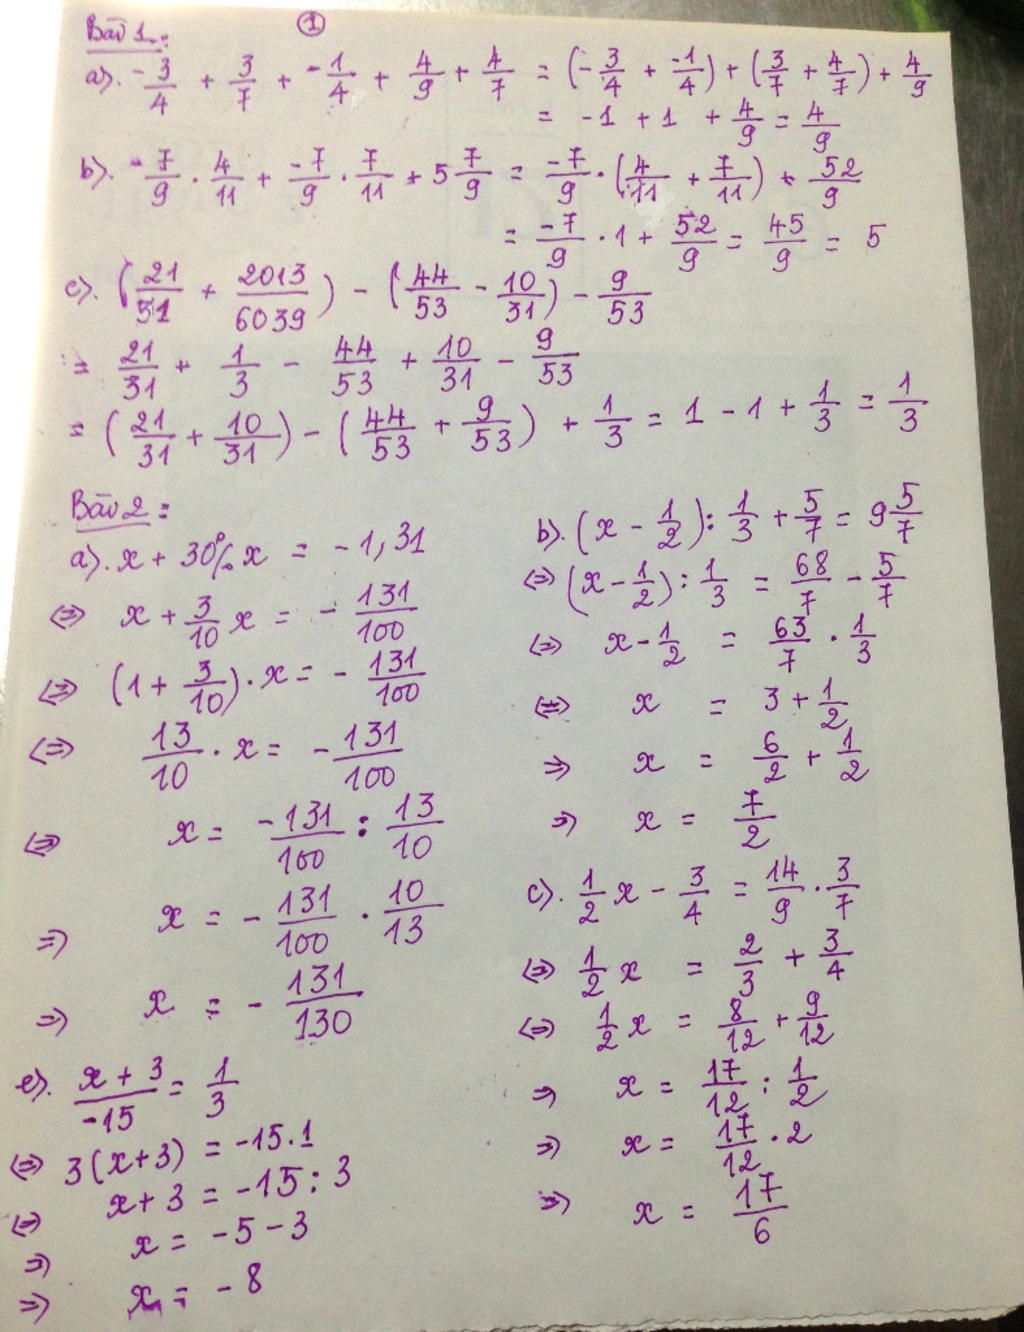 ①
Bài 1:
a). -3/4 + 3/7 + -1/4 + 4/9 + 4/7 = (-3/4 + -1/4) + (3/7 + 4/7) + 4/9
= -1 + 1 + 4/9 = 4/9
b). -7/9 . 4/11 + -7/9 . 7/11 + 5 7/9 = -7/9 . (4/11 + 7/11) + 52/9
= -7/9 . 1 + 52/9 = 45/9 = 5
c). (21/31 + 2013/6039) - (44/53 - 10/31) - 9/53
= 21/31 + 1/3 - 44/53 + 10/31 - 9/53
= (21/31 + 10/31) - (44/53 + 9/53) + 1/3 = 1 - 1 + 1/3 = 1/3
Bài 2:
a). x + 30% x = -1,31
⇔ x + 3/10 x = - 131/100
⇔ (1 + 3/10) . x = - 131/100
⇔ 13/10 . x = - 131/100
⇔ x = -131/100 : 13/10
⇒ x = - 131/100 . 10/13
⇒ x = - 131/130
e). x + 3/-15 = 1/3
⇔ 3(x+3) = -15.1
⇔ x+3 = -15 : 3
⇒ x = -5 - 3
⇒ x = -8
b). (x - 1/2) : 1/3 + 5/7 = 9 5/7
⇔ (x - 1/2) : 1/3 = 68/7 - 5/7
⇔ x - 1/2 = 63/7 . 1/3
⇔ x = 3 + 1/2
⇒ x = 6/2 + 1/2
⇒ x = 7/2
c). 1/2 x - 3/4 = 14/9 . 3/7
⇔ 1/2 x = 2/3 + 3/4
⇔ 1/2 x = 8/12 + 9/12
⇒ x = 17/12 : 1/2
⇒ x = 17/12 . 2
⇒ x = 17/6